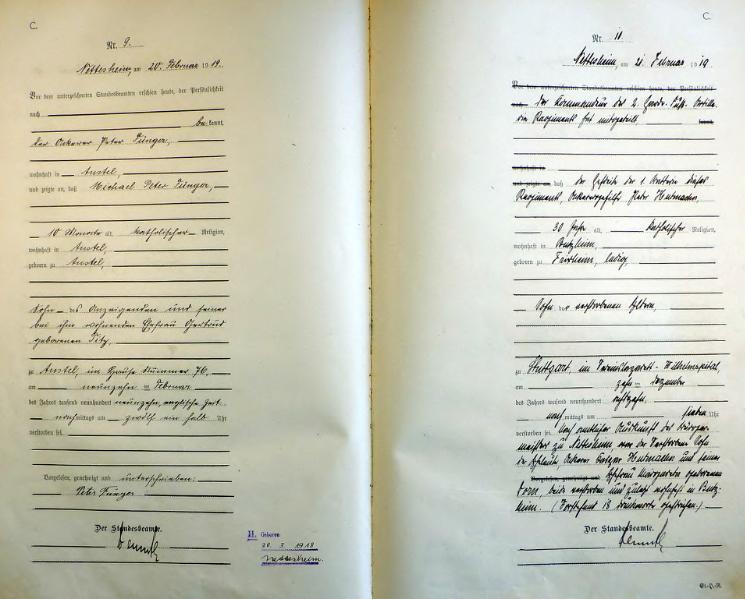 C.
Nr. 9.
Nettesheim, am 20. Februar 1919.
Vor dem unterzeichneten Standesbeamten erschien heute, der Persönlichkeit
nach
bekannt,
der Ackerer Peter Fünger,
wohnhaft in Anstel,
und zeigte an, daß Michael Peter Fünger,
10 Monate alt, katholischer Religion,
wohnhaft in Anstel,
geboren zu Anstel,
Sohn des Anzeigenden und seiner
bei ihm wohnenden Ehefrau Gertrud
geborenen
zu Anstel, im Hause Nummer 76,
am neunzehn ten Februar
des Jahres tausend neunhundert neunzehn,
nachmittags um zwölf ein halb Uhr
verstorben sei.
Vorgelesen, genehmigt und unterschrieben:
Peter Fünger
Der Standesbeamte.
H. Geboren
20. 3. 1918
Nettesheim.
C.
Nr. 11
Nettesheim, am 21 Februar 1919
Vor dem unterzeichneten Standesbeamten erschien heute, der Persönlichkeit
nach
Der Kommandeur des 2. Garde
Regiments hat mitgeteilt
kannt,
wohnhaft in
und zeigte an, daß der Gefreite der 1. Batterie dieses
Regiments, Peter Hutmacher,
30 Jahre alt, katholischer Religion,
wohnhaft in Butzheim,
geboren zu Frixheim, ledig,
Sohn der verstorbenen Eltern,
zu Stuttgart, im Wilhelmspital,
am zehn ten Dezember
des Jahres tausend neunhundert achtzehn,
nach mittags um sieben Uhr
verstorben sei. Nach amtlicher Auskunft des Bürger-
meisters zu Nettesheim war der Verstorbene Sohn
der Eheleute Ackerer Hutmacher und seiner
Vorgelesen, genehmigt und
Ehefrau Margareta geborenen
beide verstorben und zuletzt wohnhaft in Butz-
heim. (Vorstehend 18 Druckworte gestrichen.)
Der Standesbeamte.